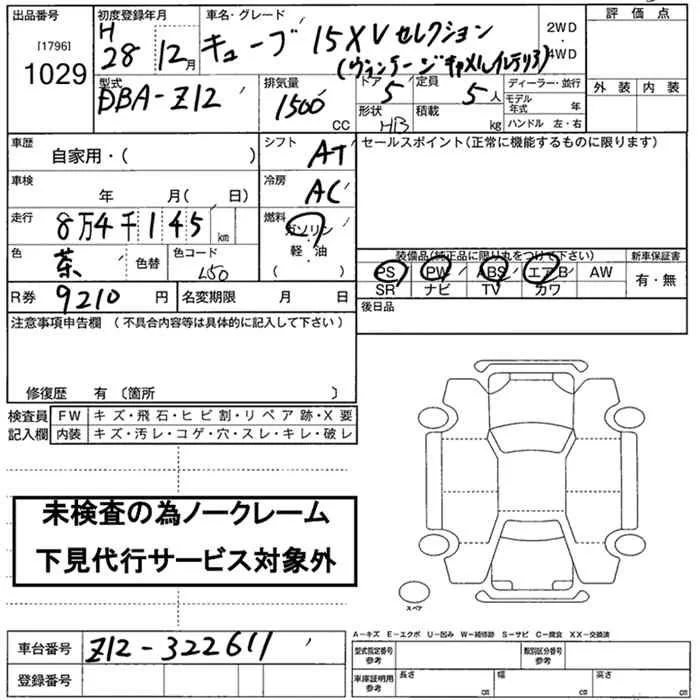 出品番号 初度登録年月 車名・グレード 評価点
[1796] H
1029 28 12月 キューブ 15XVセレクション 2WD・4WD
(ヴィンテージキャメルインテリア)
型式 排気量 ドア 定員 ディーラー・並行 外装 内装
DBA-Z12 1500 CC 5 5人 モデル年式 年
形状 積載 ハンドル 左・右
HB kg
車歴 シフト セールスポイント(正常に機能するものに限ります)
自家用・( ) AT
車検 冷房
年 月( 日) AC
走行 燃料
8万4千145km ガソリン
軽・油
( )
色 色替 色コード 装備品(純正品に限り丸をつけて下さい) 新車保証書
茶 L50 PS PW ABS エアB AW 有・無
SR ナビ TV カワ
R券 9210円 名変期限 月 日 後日品
注意事項申告欄 (不具合内容等は具体的に記入して下さい)
修復歴 有 〔箇所 〕
検査員 FW キズ・飛石・ヒビ割・リペア跡・X要
記入欄 内装 キズ・汚レ・コゲ・穴・スレ・キレ・破レ
未検査の為ノークレーム
下見代行サービス対象外
スペア
A-キズ E-エクボ U-凹み W-補修跡 S-サビ C-腐食 XX-交換済
車台番号 Z12-322611 型式指定番号参考 類別区分番号参考
登録番号 車庫証明用参考 長さ cm 幅 cm 高さ cm